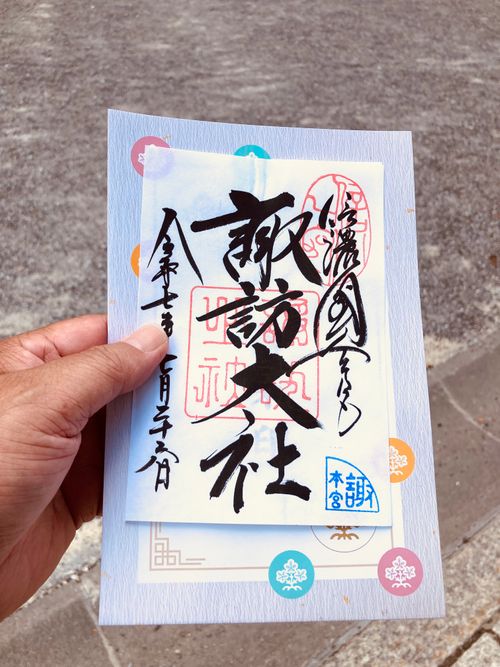 信濃國一之宮
諏訪大社
令和七年七月二十六日
諏
本宮